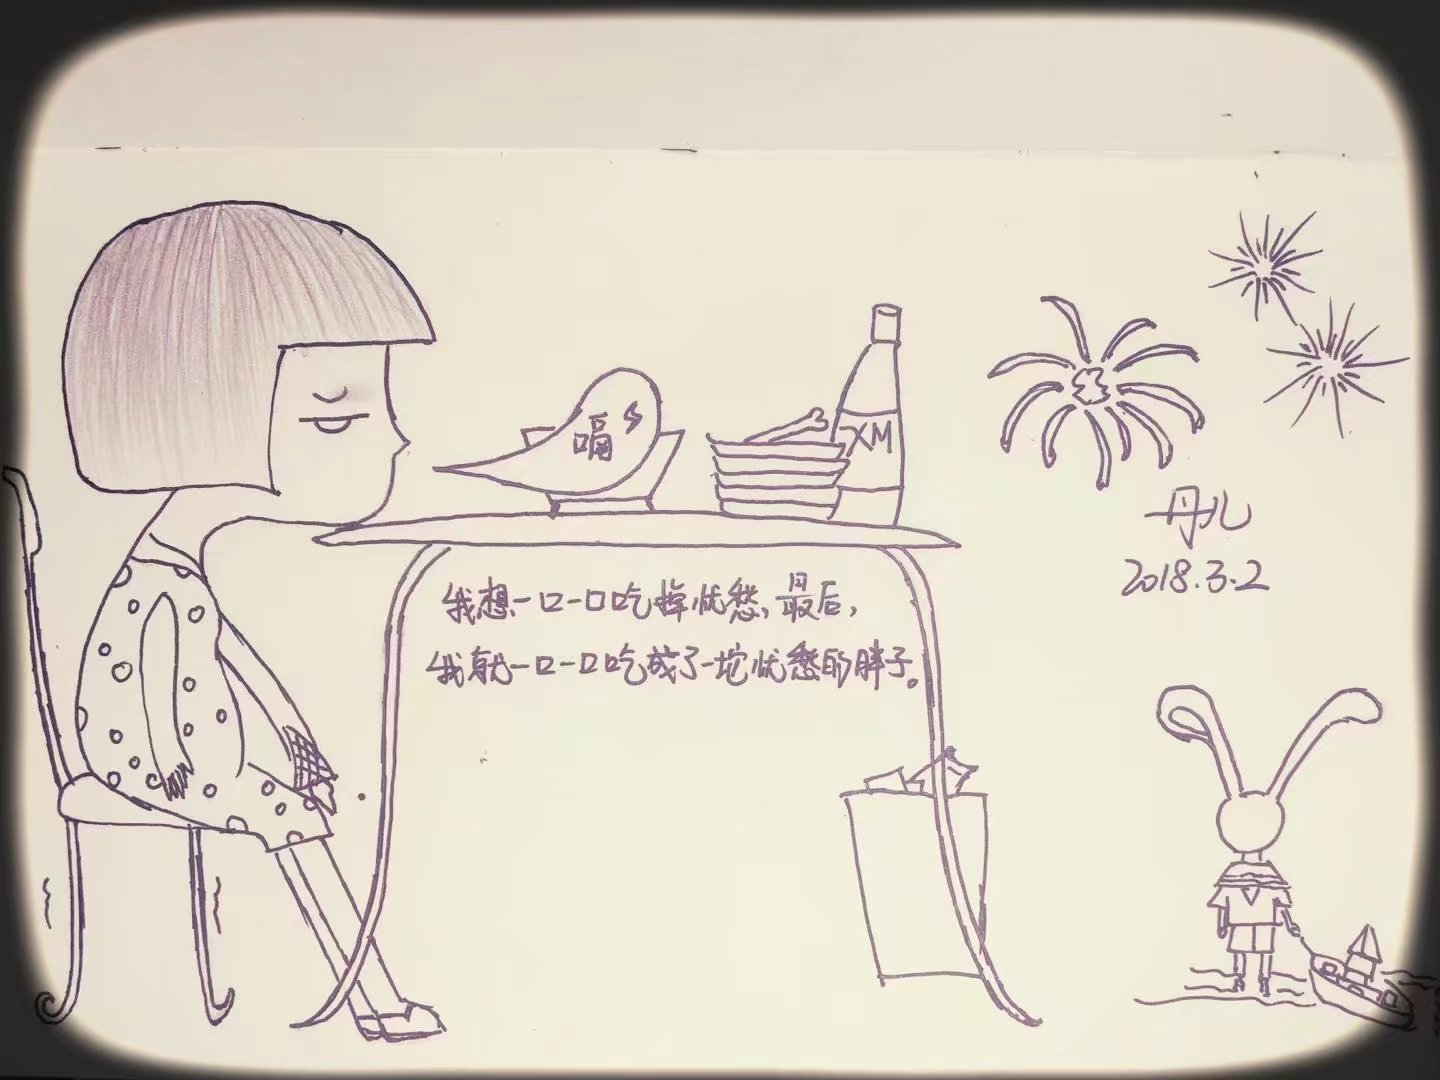 嗝
XM
丹儿
2018.3.2
我想一口一口吃掉忧愁,最后,
我就一口一口吃成了一坨忧愁的胖子。